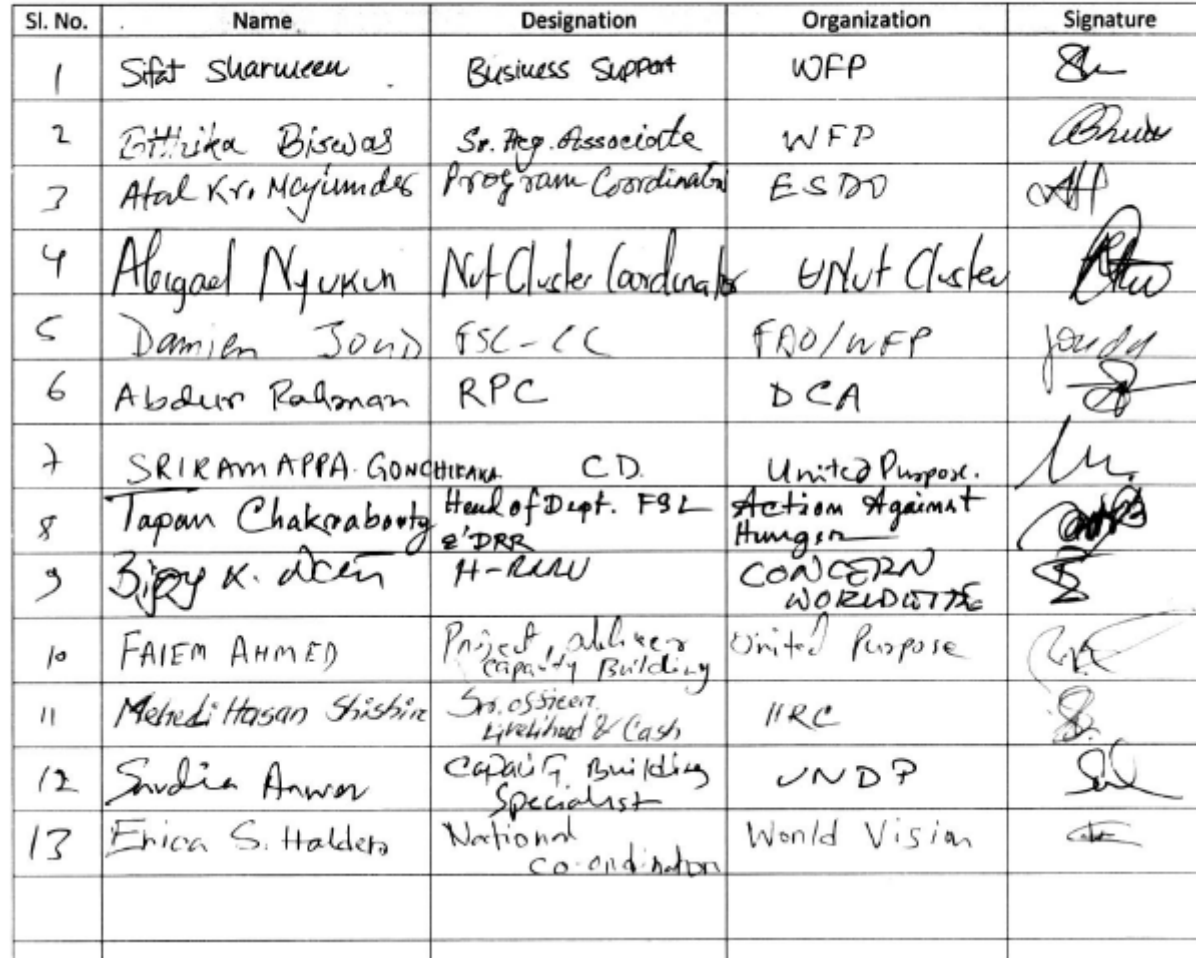 Sl. No. Name Designation Organization Signature
1 Sifat Sharmeen Business Support WFP
2 Biswas Sr. Associate WFP
3 Atal Kr. Majumder Program Coordinator ESDO
4 Abigael Nyukuri Nut Cluster Coordinator Nut Cluster
5 Damien Joud FSC-CC FAO/WFP
6 Abdur Rahman RPC DCA
7 SRIRAMAPPA GONCHIKARA C.D. United Purpose.
8 Tapan Chakraborty Head of Dept. FSL Action Against
&DRR Hunger
9 Bijoy K. CONCERN
WORLDWIDE
10 FAIEM AHMED Project United Purpose
Capacity Building
11 Mehedi Hasan Shishir Sr. officer IRC
Livelihood & Cash
12 Anwar Capacity Building UNDP
Specialist
13 Erica S. Haldero National World Vision
Co-ordinator